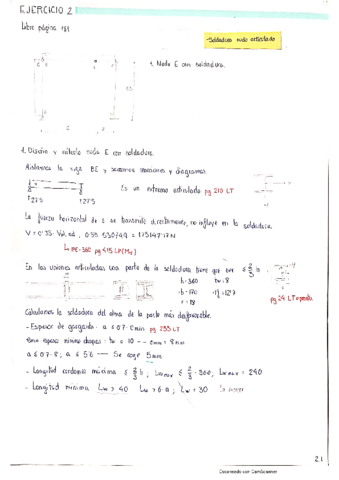 EJERCICIO 2
Libro página 181
Soldadura nudo articulado
1. Nudo E con soldadura.
1. Diseño y cálculo nudo E con soldadura.
Aislamos la viga BE y sacamos reacciones y diagramas.
Es un extremo articulado pg 210 LT
127'5 127'5
La fuerza horizontal de E se transmite directamente, no influye en la soldadura.
IPE-360 pg 415 LP
En las uniones articuladas una parte de la soldadura tiene que ser ≤ 2/3 h
h = 360 tw = 8
b = 170 tf = 12'7
r = 18
pg 24 LT
Calculamos la soldadura del alma de la parte más desfavorable.
- Espesor de garganta: a ≤ 0'7·emin pg 255 LT
a ≤ 0'7·8; a ≤ 5'6 — Se coge 5mm
- Longitud cordones máxima ≤ 2/3 h, Lw max ≤ 2/3 · 360, Lw max = 240
- Longitud mínima Lw > 40 Lw > 6·a; Lw = 30 La mayor
21
Escaneado con CamScanner